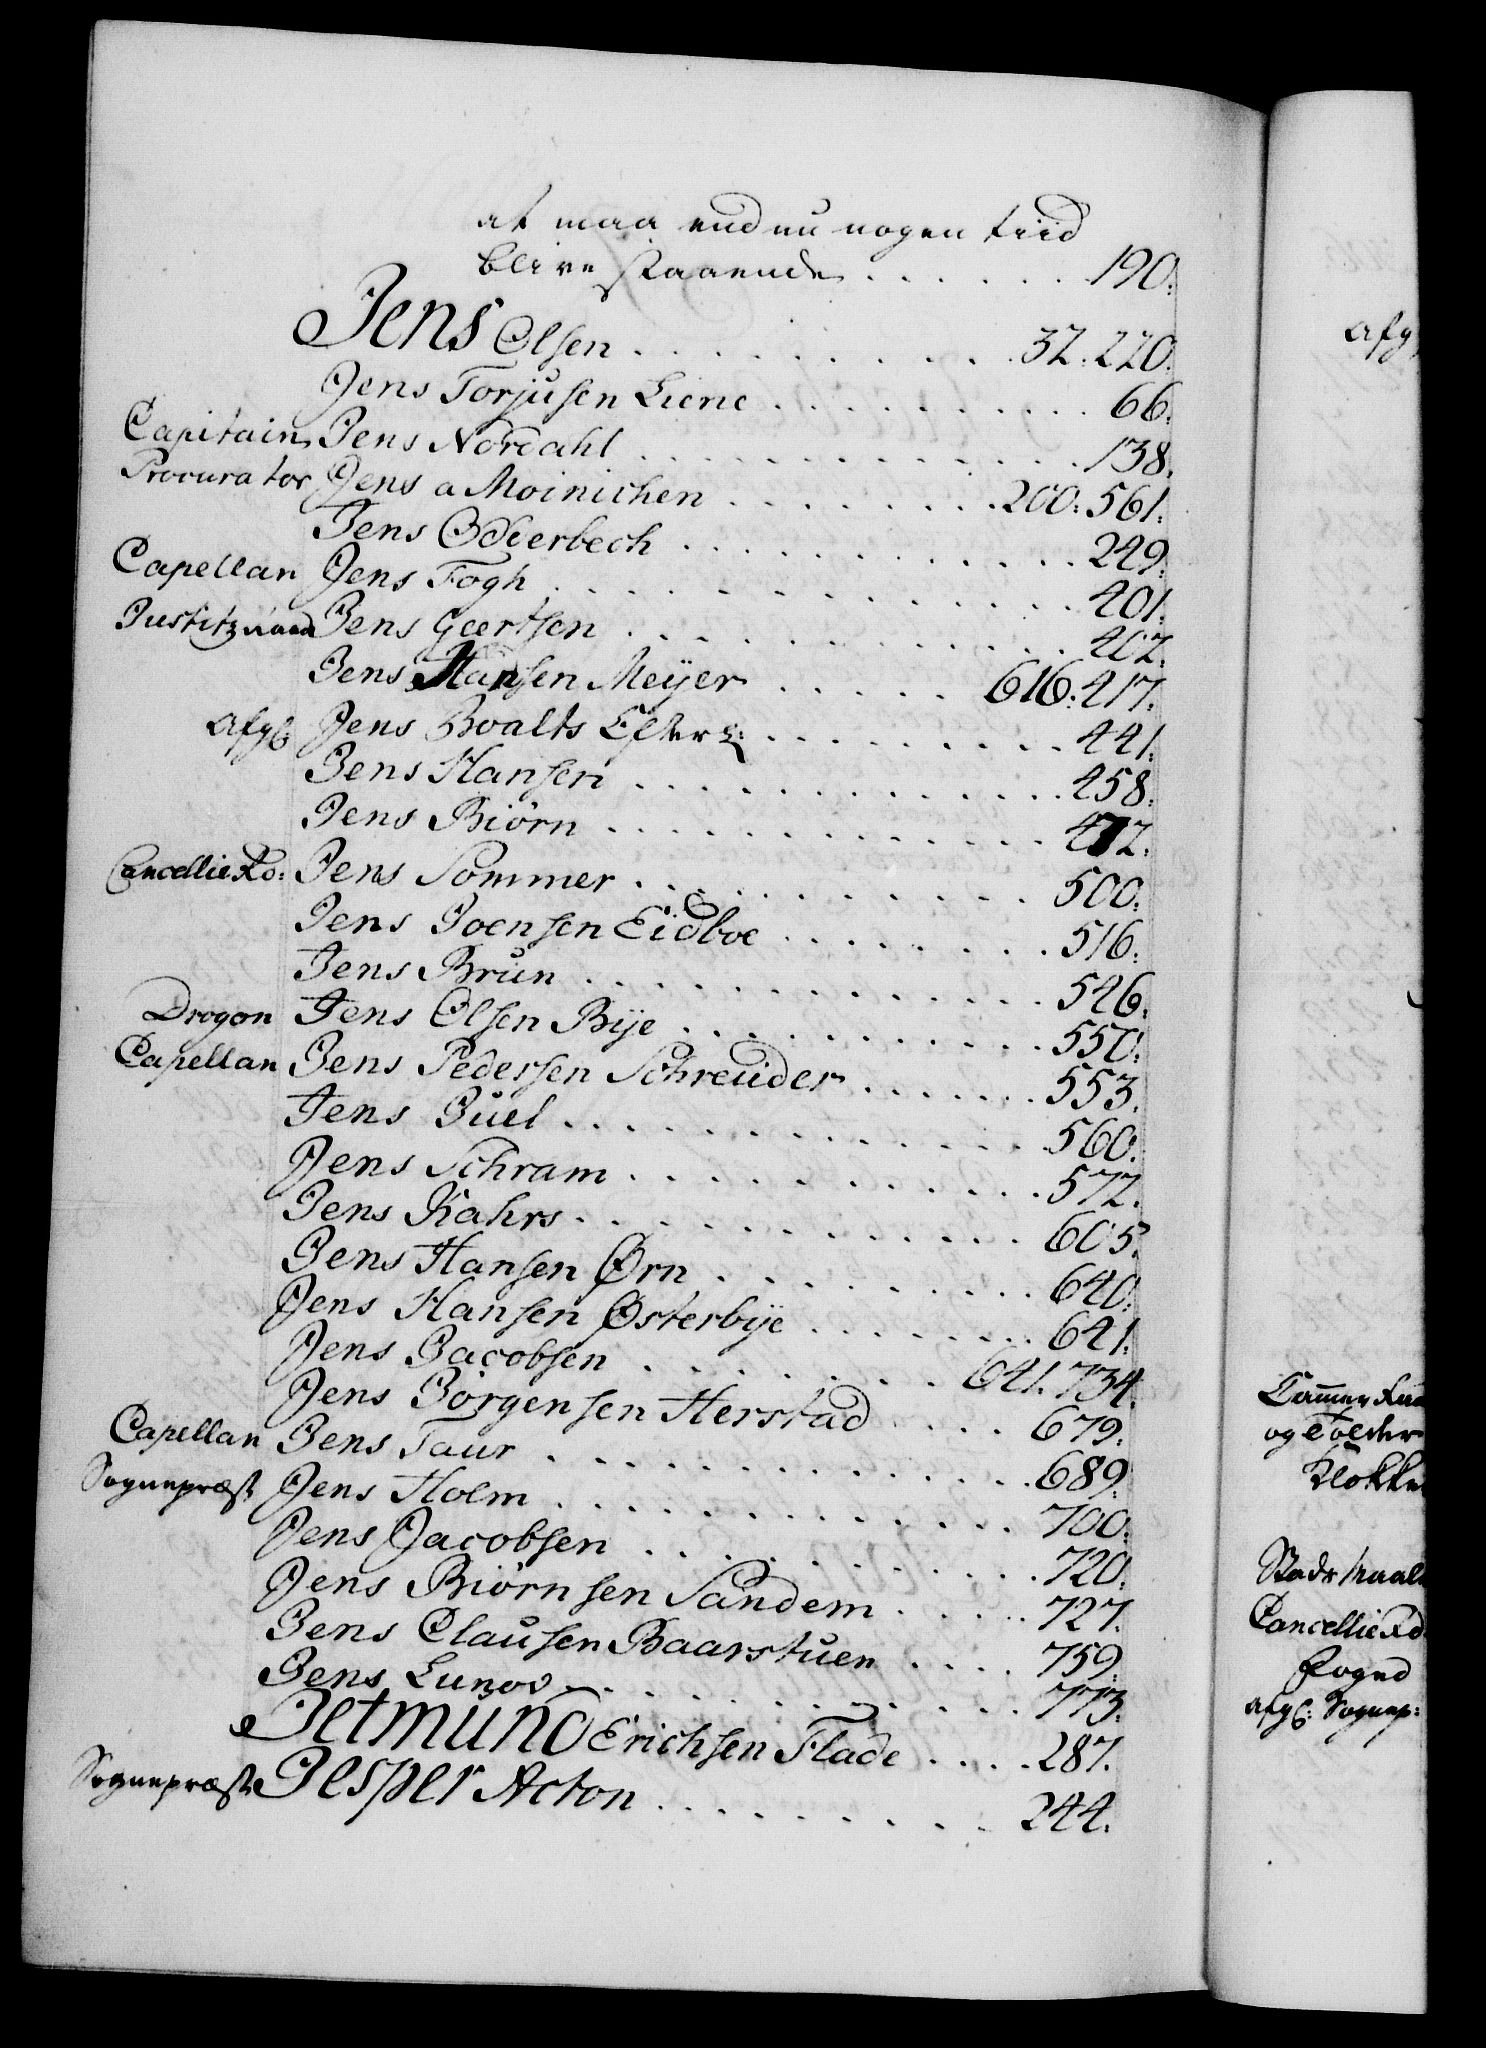 at maa end nu nogen tiid
blive staaende . . . . . . 190.
Jens Olsen . . . . . . . . . . 32. 220.
Jens Torjusen Liene . . . . . . . . . . 66.
Capitain Jens Nordahl . . . . . . . . . . . . . 138.
Procurator Jens a Moinichen . . . . . . . . . 200. 561.
Jens Odderbech . . . . . . . . . . . . 249.
Capellan Jens Fogh . . . . . . . . . . . . . . . 401.
Justitzraad Jens Geertsen . . . . . . . . . . . . . 402.
Jens Hansen Meyer . . . . . . 616. 417.
Afg: Jens Boalts Efterl: . . . . . . . . . 441.
Jens Hansen . . . . . . . . . . . . . 458.
Jens Biörn . . . . . . . . . . . . . 472.
CancellieRd: Jens Sommer . . . . . . . . . . . . 500.
Jens Joensen Eidboe . . . . . . . . 516.
Jens Brun . . . . . . . . . . . . . . 546.
Dragon Jens Olsen Bye . . . . . . . . . . . 550.
Capellan Jens Pedersen Schreuder . . . . . . 553.
Jens Juel . . . . . . . . . . . . . . 560.
Jens Schram . . . . . . . . . . . . 572.
Jens Kahrs . . . . . . . . . . . . . 605.
Jens Hansen Ørn . . . . . . . . . . 640.
Jens Hansen Østerbye . . . . . . . 641.
Jens Jacobsen . . . . . . . . . 641. 734.
Jens Jörgensen Herstad . . . . 679.
Capellan Jens Taur . . . . . . . . . . . . . . 689.
Sognepræst Jens Holm . . . . . . . . . . . . . . 700.
Jens Jacobsen . . . . . . . . . . . . 720.
Jens Biörnsen Sandem . . . . . 727.
Jens Clausen Baarstuen . . . . 759.
Jens Lunov . . . . . . . . . . . . . 773.
Jetmund Erichsen Flade . . . . 287.
Sognepræst Jesper Acton . . . . . . . . . . 244.
Afg
og Tolder
Klokke
CancellieRd
Foged
Afg: Sognep: